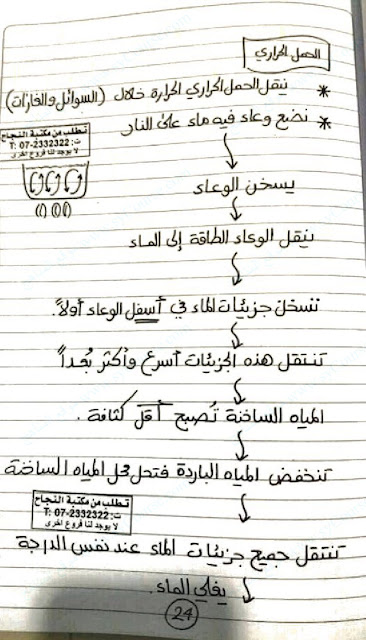 الحمل الحراري
* ينقل الحمل الحراري الحرارة خلال (السوائل والغازات)
* نضع وعاء فيه ماء على النار
تطلب من مكتبة النجاح
ت: 07-2332322 :T
لا يوجد لنا فروع اخرى
يسخن الوعاء
ينقل الوعاء الطاقة إلى الماء
تسخن جزيئات الماء في أسفل الوعاء أولاً.
تنتقل هذه الجزيئات أسرع وأكثر بُعداً
المياه الساخنة تُصبح أقل كثافة .
تنخفض المياه الباردة فتحل محل المياه الساخنة
تطلب من مكتبة النجاح
ت: 07-2332322 :T
لا يوجد لنا فروع اخرى
تنتقل جميع جزيئات الماء عند نفس الدرجة
يغلي الماء.
24